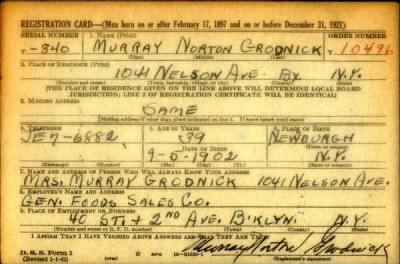 REGISTRATION CARD—(Men born on or after February 17, 1897 and on or before December 31, 1921)
SERIAL NUMBER 1. NAME (Print) ORDER NUMBER
T-840 MURRAY NORTON GRODNICK 10496
(First) (Middle) (Last)
2. PLACE OF RESIDENCE (Print)
1041 NELSON AVE. BX N.Y.
(Number and street) (Town, township, village, or city) (County) (State)
[THE PLACE OF RESIDENCE GIVEN ON THE LINE ABOVE WILL DETERMINE LOCAL BOARD
JURISDICTION; LINE 2 OF REGISTRATION CERTIFICATE WILL BE IDENTICAL]
3. MAILING ADDRESS
SAME
[Mailing address if other than place indicated on line 2. If same insert word same]
4. TELEPHONE 5. AGE IN YEARS 6. PLACE OF BIRTH
JE 7-6882 39 NEWBURGH
DATE OF BIRTH
9-5-1902 N.Y.
(Exchange) (Number) (Mo.) (Day) (Yr.) (State or country)
7. NAME AND ADDRESS OF PERSON WHO WILL ALWAYS KNOW YOUR ADDRESS
MRS. MURRAY GRODNICK 1041 NELSON AVE.
8. EMPLOYER'S NAME AND ADDRESS
GEN. FOODS SALES CO.
9. PLACE OF EMPLOYMENT OR BUSINESS
40 ST. + 2ND AVE. B'KLYN. N.Y.
(Number and street or R. F. D. number) (Town) (County) (State)
I AFFIRM THAT I HAVE VERIFIED ABOVE ANSWERS AND THAT THEY ARE TRUE.
D. S. S. Form 1
(Revised 1-1-42) Murray Norton Grodnick
(Registrant's signature)